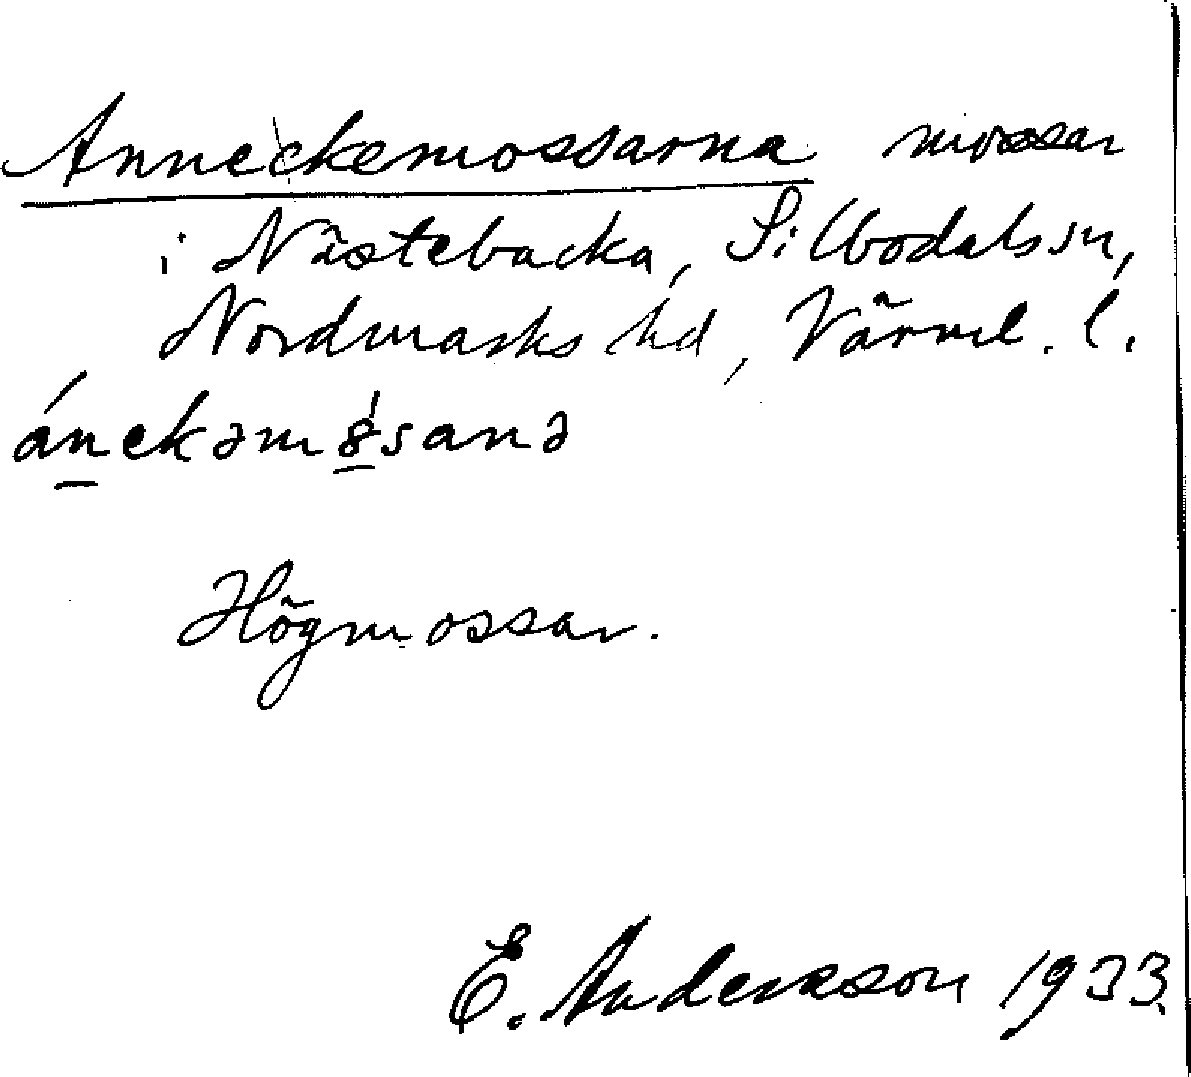 Anneckemossarna mossar
i Nästebacka, Silbodals sn,
Nordmarks hd, Värml. l.
ánekəmǫ́sanə
Högmossar.
E. Andersson 1933.